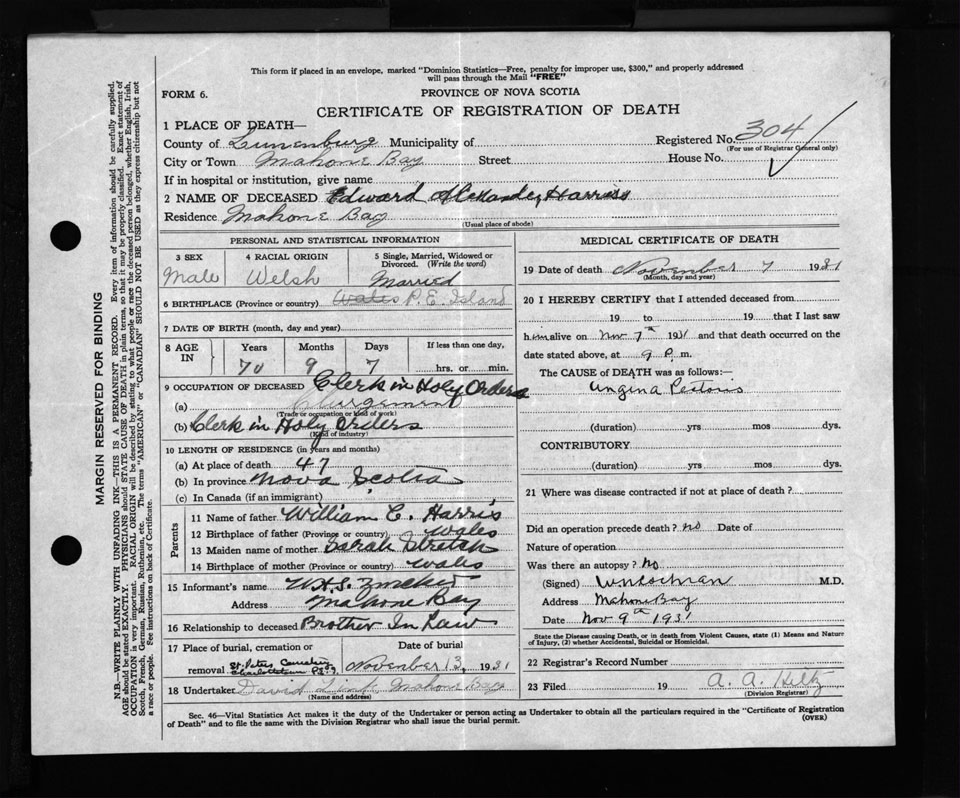 This form if placed in an envelope, marked "Dominion Statistics—Free, penalty for improper use, $300," and properly addressed
will pass through the Mail "FREE"
FORM 6.
PROVINCE OF NOVA SCOTIA
CERTIFICATE OF REGISTRATION OF DEATH
1 PLACE OF DEATH—
Registered No. 304
(For use of Registrar General only)
County of Lunenburg Municipality of
City or Town Mahone Bay Street House No.
If in hospital or institution, give name
2 NAME OF DECEASED Edward Alexander Harris
Residence Mahone Bay
(Usual place of abode)
PERSONAL AND STATISTICAL INFORMATION
3 SEX
Male
4 RACIAL ORIGIN
Welsh
5 Single, Married, Widowed or
Divorced. (Write the word)
Married
6 BIRTHPLACE (Province or country) Wales P.E. Island
7 DATE OF BIRTH (month, day and year)
8 AGE IN
Years Months Days If less than one day,
70 9 7 hrs. or min.
9 OCCUPATION OF DECEASED Clerk in Holy Orders
(a) Clergyment
(Trade or occupation or kind of work)
(b) Clerk in Holy Orders
(Kind of industry)
10 LENGTH OF RESIDENCE (in years and months)
(a) At place of death 47
(b) In province Nova Scotia
(c) In Canada (if an immigrant)
Parents
11 Name of father William C. Harris
12 Birthplace of father (Province or country) Wales
13 Maiden name of mother Sarah Stretch
14 Birthplace of mother (Province or country) Wales
15 Informant's name W.H.S. Zwicker
Address Mahone Bay
16 Relationship to deceased Brother In Law
17 Place of burial, cremation or Date of burial
removal St. Peters Cemetery
Charlottetown P.E.I. November 13, 1931
18 Undertaker David Mahone Bay
(Name and address)
MEDICAL CERTIFICATE OF DEATH
19 Date of death November 7 1931
(Month, day and year)
20 I HEREBY CERTIFY that I attended deceased from
19 to 19 that I last saw
him alive on Nov 7th 1931 and that death occurred on the
date stated above, at 9 P. m.
The CAUSE of DEATH was as follows:
Angina Pectoris
(duration) yrs mos dys.
CONTRIBUTORY
(duration) yrs. mos. dys.
21 Where was disease contracted if not at place of death?
Did an operation precede death? no Date of
Nature of operation
Was there an autopsy? No
(Signed) W.N. Cochran M.D.
Address Mahone Bay
Date Nov 9th 1931
State the Disease causing Death, or in death from Violent Causes, state (1) Means and Nature
of Injury, (2) whether Accidental, Suicidal or Homicidal.
22 Registrar's Record Number
23 Filed 19 A. A. Hiltz
(Division Registrar)
Sec. 46—Vital Statistics Act makes it the duty of the Undertaker or person acting as Undertaker to obtain all the particulars required in the "Certificate of Registration
of Death" and to file the same with the Division Registrar who shall issue the burial permit.
(OVER)
MARGIN RESERVED FOR BINDING
N.B.—WRITE PLAINLY WITH UNFADING INK—THIS IS A PERMANENT RECORD. Every item of information should be carefully supplied.
AGE should be stated EXACTLY. PHYSICIANS should STATE CAUSE OF DEATH in plain terms, so that it may be properly classified. Exact statement of
OCCUPATION is very important. RACIAL ORIGIN will be described by stating to what people or race the deceased person belonged, whether English, Irish,
Scotch, French, German, Russian, Ruthenian, etc. The terms "AMERICAN" or "CANADIAN" SHOULD NOT BE USED as they express citizenship but not
a race or people. See instructions on back of Certificate.